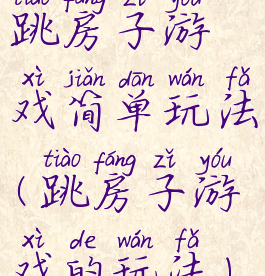 tiào fáng zǐ yóu
跳房子游
xì jiǎn dān wán fǎ
戏简单玩法
tiào fáng zǐ yóu
(跳房子游
xì de wán fǎ
戏的玩法)